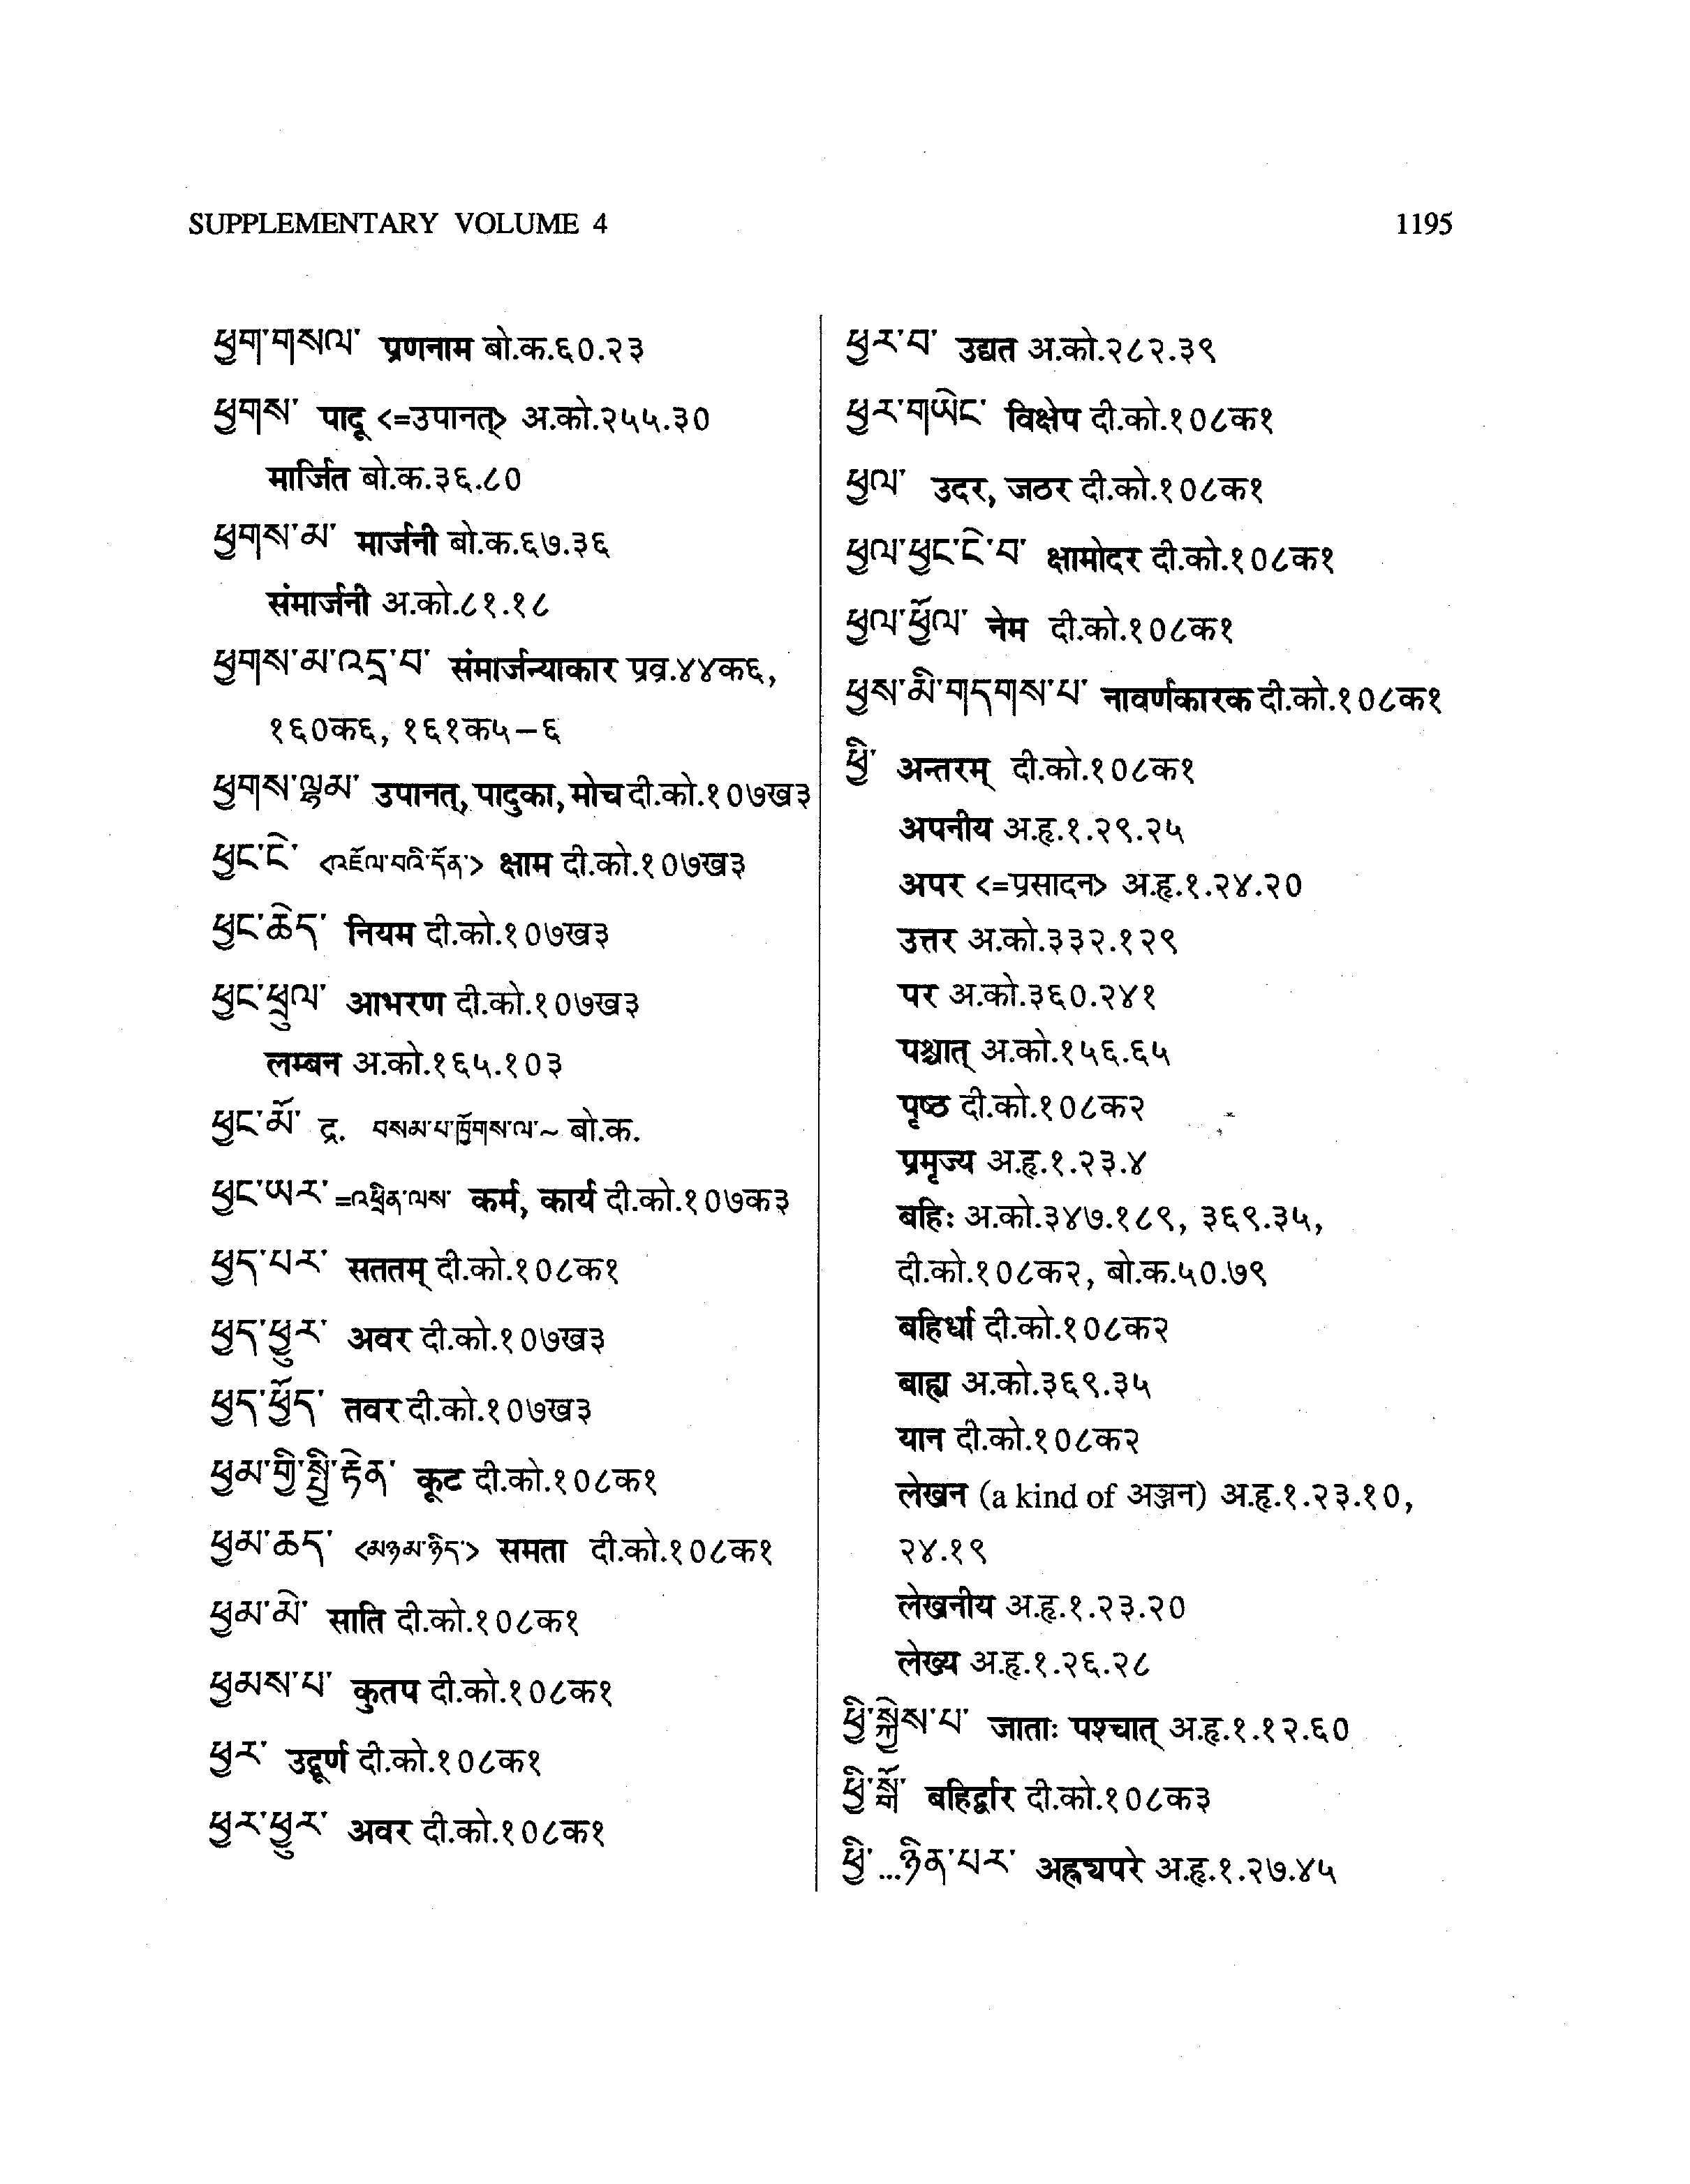 SUPPLEMENTARY VOLUME 4
1195
ཕྱག་གསལ་ प्रणनाम बो.क.६०.२३
ཕྱགས་ पादू <=उपानत्> अ.को.२५५.३०
मार्जित बो.क.३६.८०
ཕྱགས་མ་ मार्जनी बो.क.६७.३६
संमार्जनी अ.को.८१.१८
ཕྱགས་མ་འདྲ་བ་ संमार्जन्याकार प्रव्र.४४क६,
१६०क६, १६१क५-६
ཕྱགས་ལྷམ་ उपानत्, पादुका, मोच दी.को.१०७ख३
ཕྱང་ངེ་ <འཇོལ་བའི་དོན་> क्षाम दी.को.१०७ख३
ཕྱང་ཆེད་ नियम दी.को.१०७ख३
ཕྱང་ཕྲུལ་ आभरण दी.को.१०७ख३
लम्बन अ.को.१६५.१०३
ཕྱང་མོ་ द्र. བསམ་པ་ཁྲོགས་ལ་~ बो.क.
ཕྱང་ཡར་ =འཕྲིན་ལས་ कर्म, कार्य दी.को.१०७क३
ཕྱད་པར་ सततम् दी.को.१०८क१
ཕྱད་ཕྱུར་ अवर दी.को.१०७ख३
ཕྱད་ཕྱོད་ तवर दी.को.१०७ख३
ཕྱམ་གྱི་སྤྱི་རྟེན་ कूट दी.को.१०८क१
ཕྱམ་ཆད་ <མཉམ་ཉིད་> समता दी.को.१०८क१
ཕྱམ་མེ་ साति दी.को.१०८क१
ཕྱམས་པ་ कुतप दी.को.१०८क१
ཕྱར་ उद्गूर्ण दी.को.१०८क१
ཕྱར་ཕྱུར་ अवर दी.को.१०८क१
ཕྱར་བ་ उद्यत अ.को.२८२.३९
ཕྱར་གཡེང་ विक्षेप दी.को.१०८क१
ཕྱལ་ उदर, जठर दी.को.१०८क१
ཕྱལ་ཕྱང་ངེ་བ་ क्षामोदर दी.को.१०८क१
ཕྱལ་ཕྱོལ་ नेम दी.को.१०८क१
ཕྱས་མི་གདགས་པ་ नावर्णकारक दी.को.१०८क१
ཕྱི་ अन्तरम् दी.को.१०८क१
अपनीय अ.हृ.१.२९.२५
अपर <=प्रसादन> अ.हृ.१.२४.२०
उत्तर अ.को.३३२.१२९
पर अ.को.३६०.२४१
पश्चात् अ.को.१५६.६५
पृष्ठ दी.को.१०८क२
प्रमृज्य अ.हृ.१.२३.४
बहिः अ.को.३४७.१८९, ३६९.३५,
दी.को.१०८क२, बो.क.५०.७९
बहिर्धा दी.को.१०८क२
बाह्य अ.को.३६९.३५
यान दी.को.१०८क२
लेखन (a kind of अञ्जन) अ.हृ.१.२३.१०,
२४.१९
लेखनीय अ.हृ.१.२३.२०
लेख्य अ.हृ.१.२६.२८
ཕྱི་སྐྱེས་པ་ जाताः पश्चात् अ.हृ.१.१२.६०
ཕྱི་སྒོ་ बहिर्द्वार दी.को.१०८क३
ཕྱི་...ཉིན་པར་ अह्न्यपरे अ.हृ.१.२७.४५